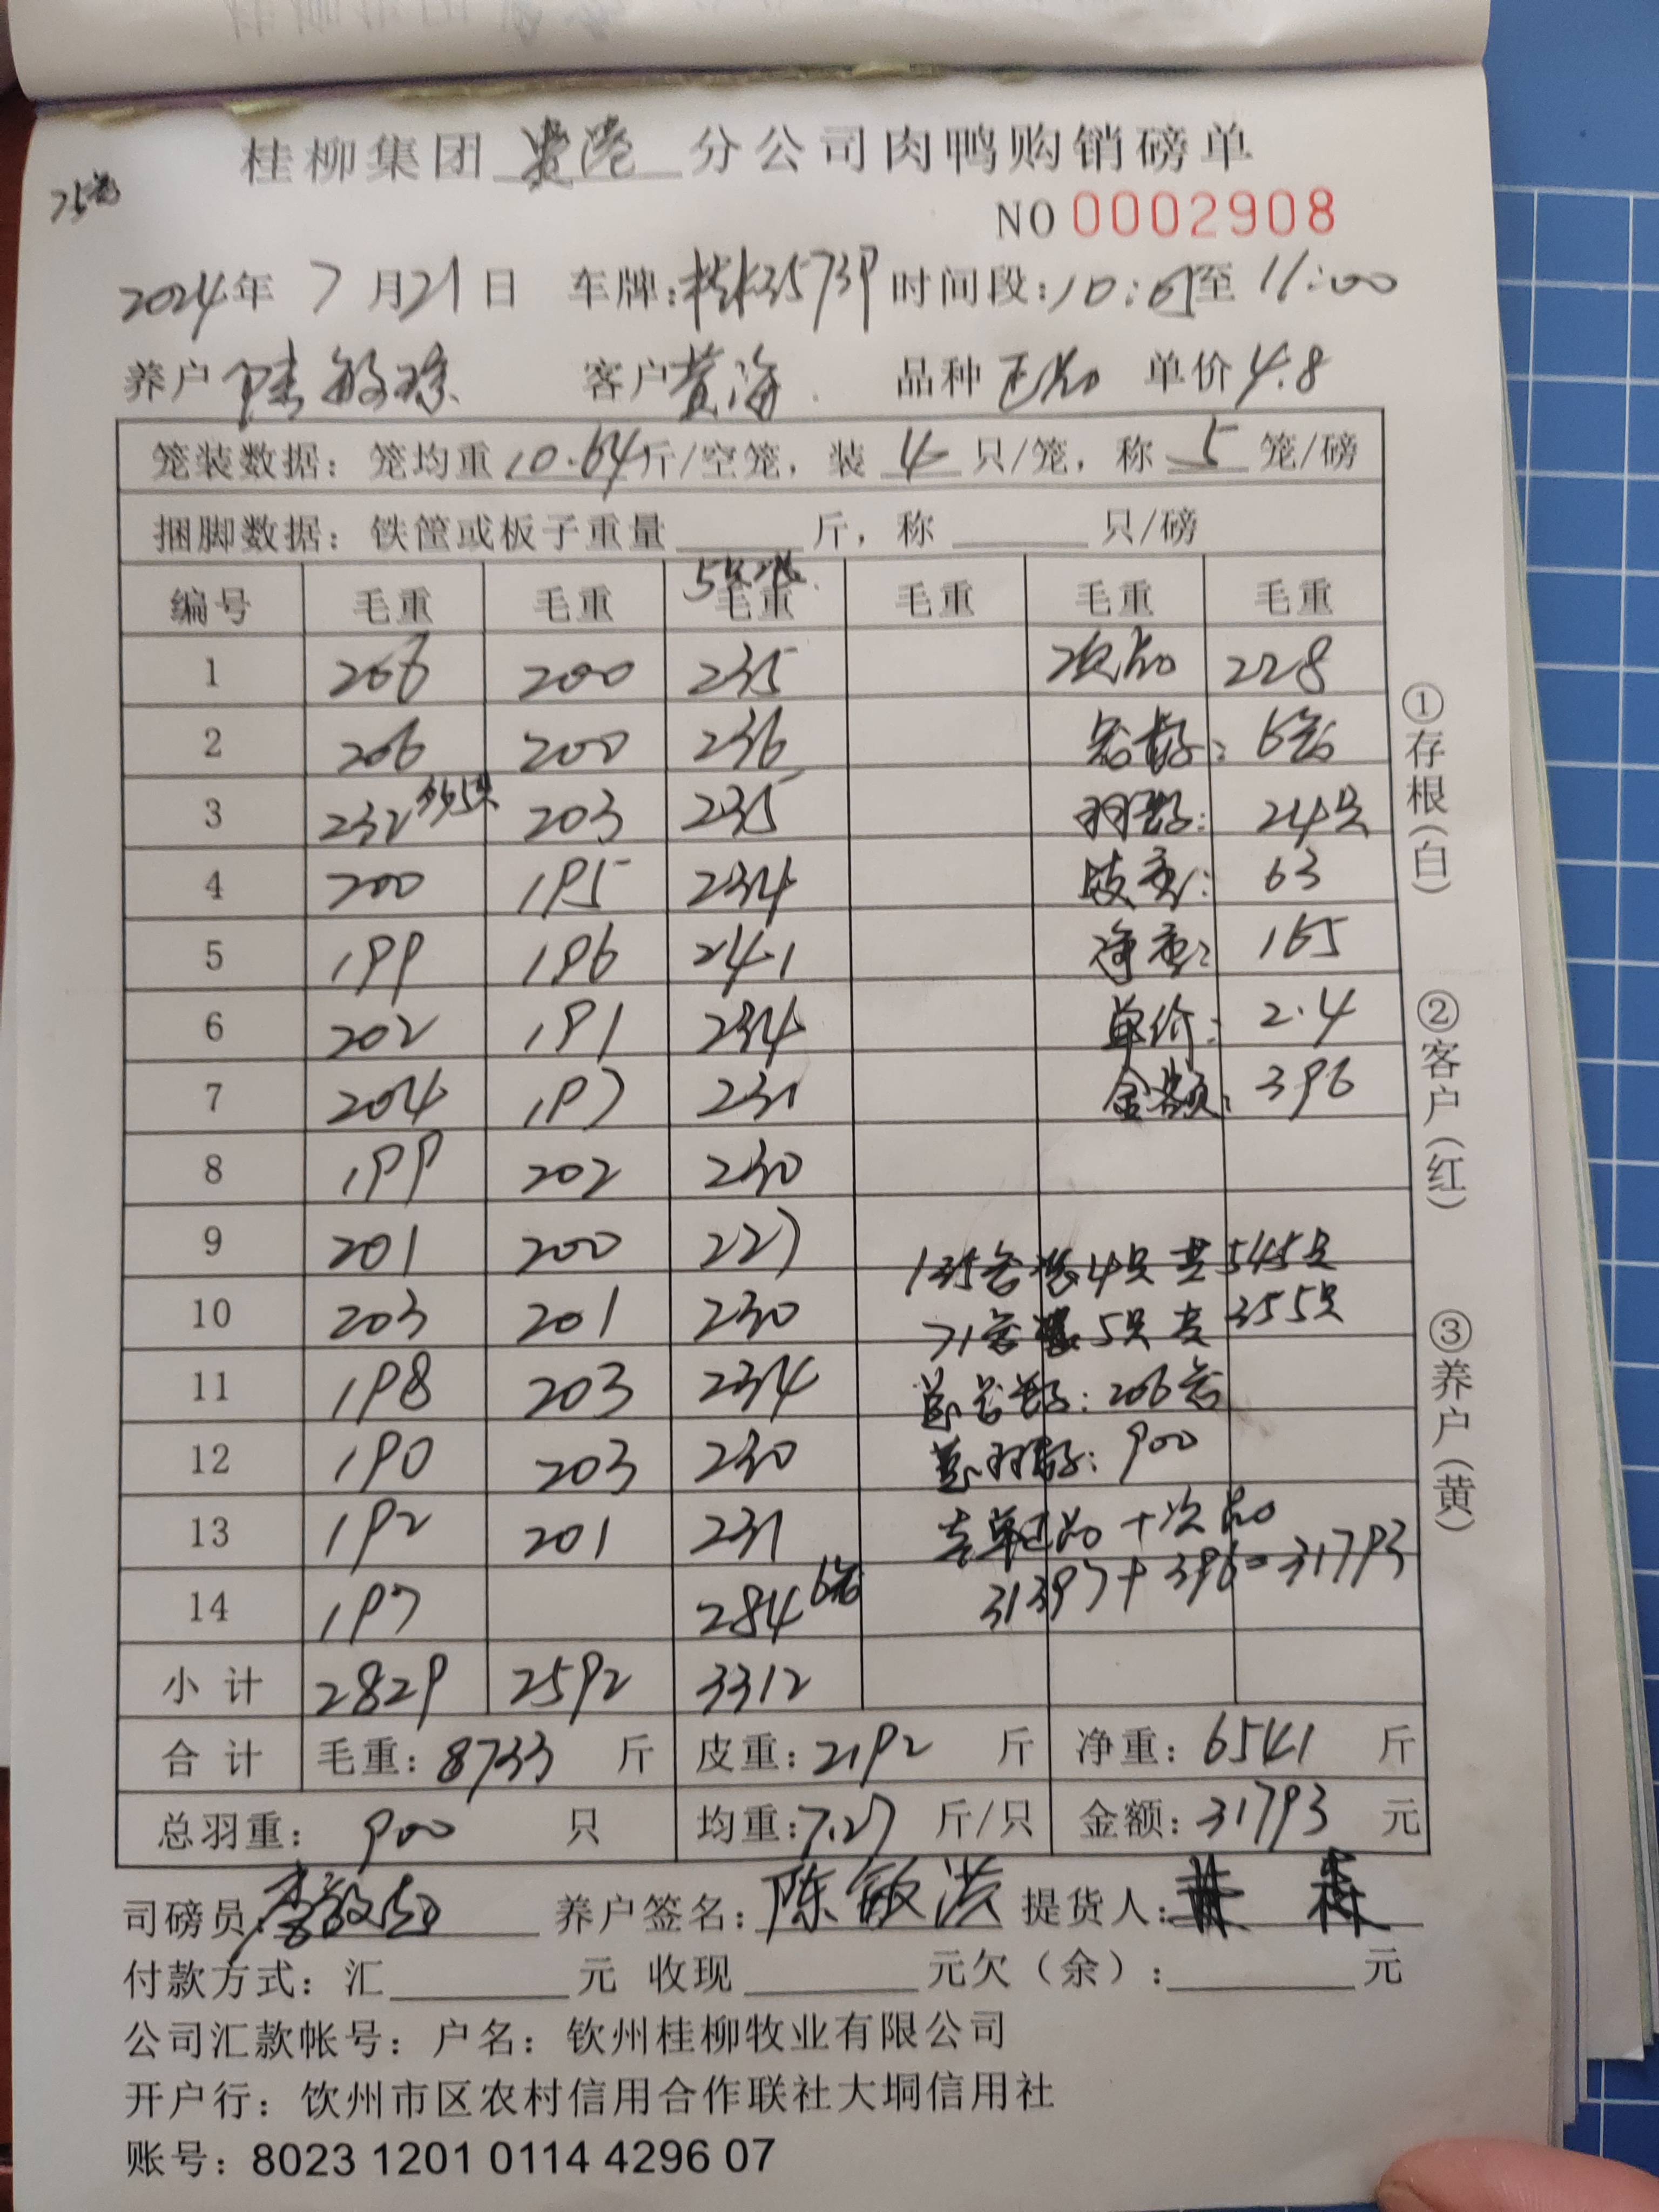 桂柳集团 贵港 分公司肉鸭购销磅单
NO 0002908
2024年 7 月21日 车牌: 时间段: 至 11:00
养户 客户 黄海 品种 正品 单价 4.8
笼装数据: 笼均重 10.64 斤/空笼, 装 4 只/笼, 称 5 笼/磅
捆脚数据: 铁筐或板子重量 斤, 称 只/磅
编号 毛重 毛重 毛重 毛重 毛重 毛重
1 206 200 235 次品 228
2 206 200 236 笼数: 6笼
3 232 203 235 羽数: 24只
4 200 195 234 皮重: 63
5 199 196 241 净重: 165
6 202 191 234 单价: 2.4
7 204 197 231 金额: 396
8 199 202 230
9 201 200 227 135笼装4只共545只
10 203 201 230 71笼装5只共355只
11 198 203 234 总笼数: 206笼
12 190 203 230 总羽数: 900
13 192 201 231 正品+次品
14 197 284 6笼 31397+396=31793
小计 2829 2592 3312
合计 毛重: 8733 斤 皮重: 2192 斤 净重: 6541 斤
总羽重: 900 只 均重: 7.27 斤/只 金额: 31793 元
司磅员: 养户签名: 陈敏洪 提货人:
付款方式: 汇 元 收现 元欠(余): 元
公司汇款帐号: 户名: 钦州桂柳牧业有限公司
开户行: 饮州市区农村信用合作联社大垌信用社
账号: 8023 1201 0114 4296 07
①存根(白)
②客户(红)
③养户(黄)